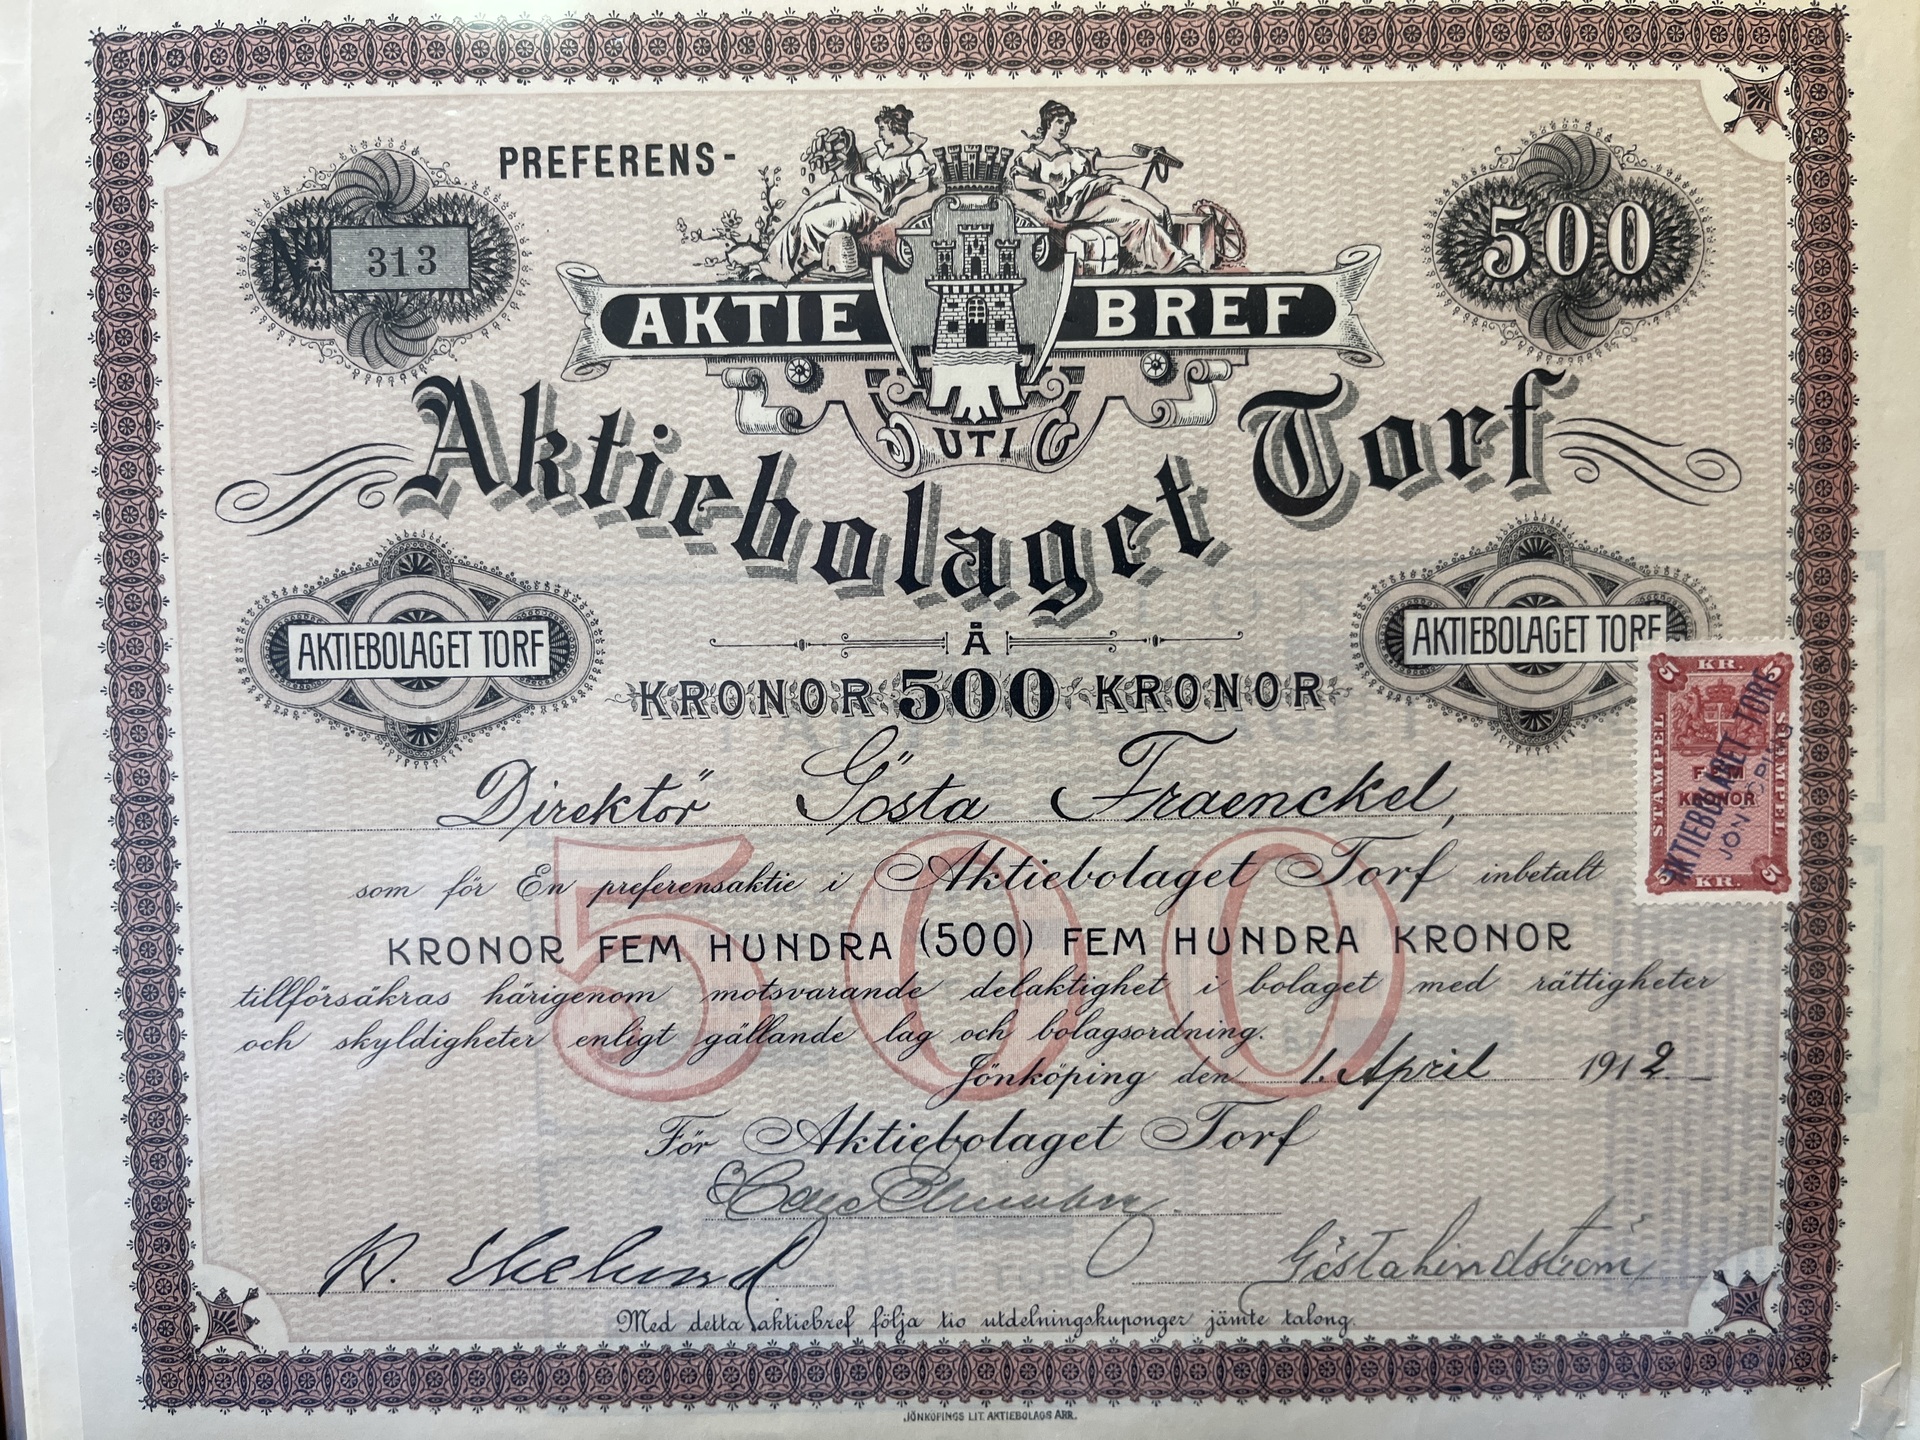 PREFERENS-
No 313
500
AKTIE BREF
UTI
Aktiebolaget Torf
AKTIEBOLAGET TORF
AKTIEBOLAGET TORF
Å
KRONOR 500 KRONOR
KR. 5
STÄMPEL
STÄMPEL
FEM
KRONOR
5 KR. 5
AKTIEBOLAGET TORF
Direktör Gösta Fraenckel,
500
som för En preferensaktie i Aktiebolaget Torf inbetalt
KRONOR FEM HUNDRA (500) FEM HUNDRA KRONOR
tillförsäkras härigenom motsvarande delaktighet i bolaget med rättigheter
och skyldigheter enligt gällande lag och bolagsordning.
Jönköping den 1. April 1912
För Aktiebolaget Torf
K. Ekelund
Gösta Lindström
Med detta aktiebref följa tio utdelningskuponger jämte talong.
JÖNKÖPINGS LIT. AKTIEBOLAGS ARR.